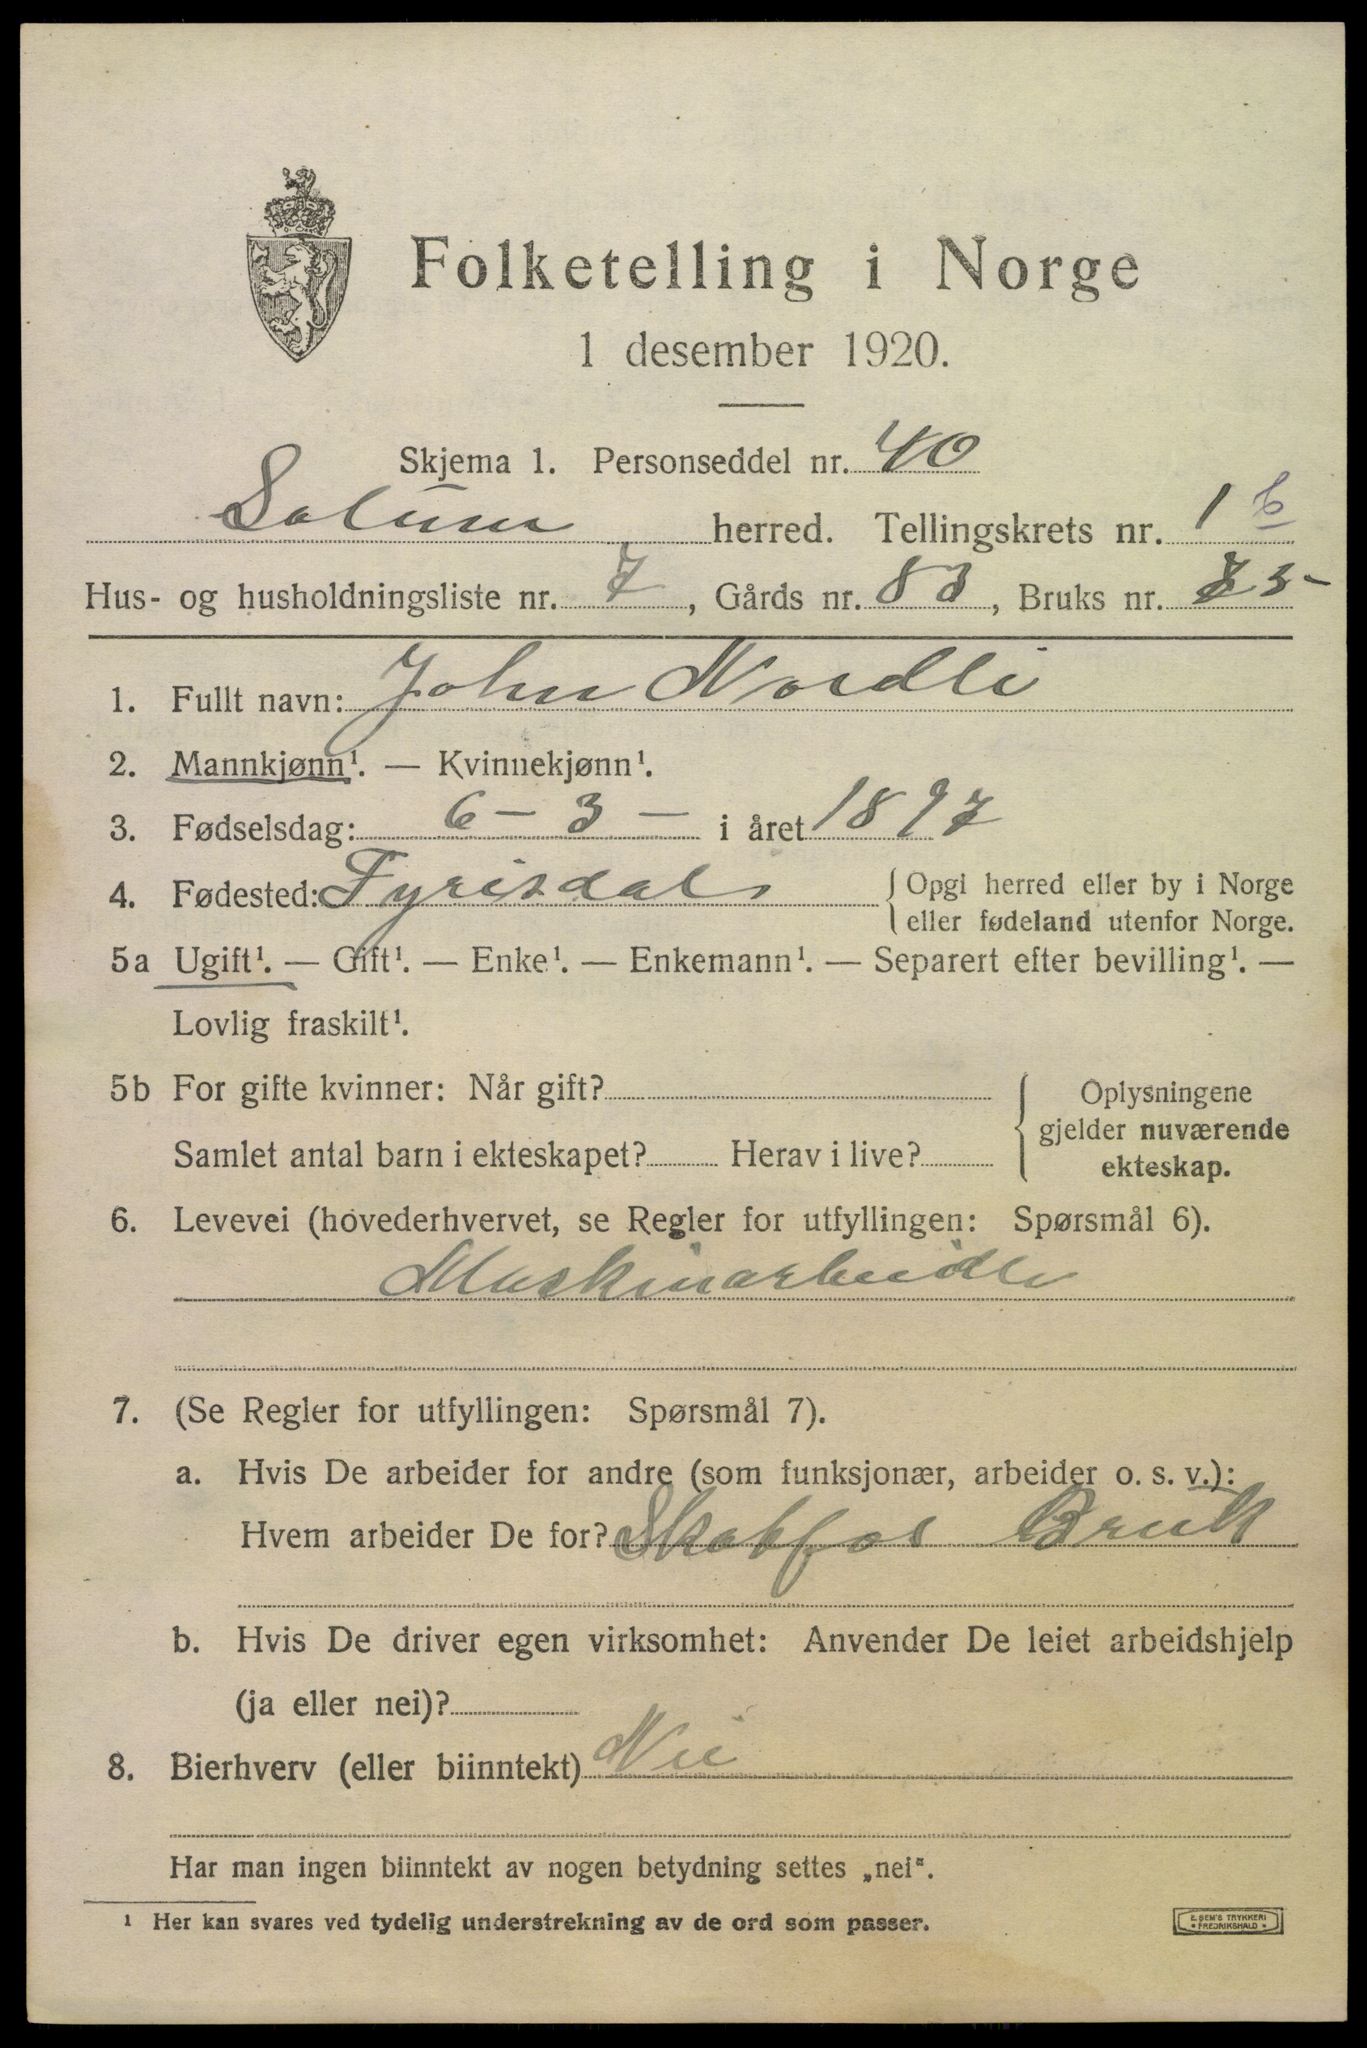 Folketelling i Norge
1 desember 1920.
Skjema 1. Personseddel nr. 40
Solum herred. Tellingskrets nr. 1 b
Hus- og husholdningsliste nr. 7, Gårds nr. 83, Bruks nr.
1. Fullt navn: John Nordli
2. Mannkjønn¹. — Kvinnekjønn¹.
3. Fødselsdag: 6 - 3 - i året 1897
4. Fødested: Fyrisdal { Opgi herred eller by i Norge
eller fødeland utenfor Norge.
5a Ugift¹. — Gift¹. — Enke¹. — Enkemann¹. — Separert efter bevilling¹. —
Lovlig fraskilt¹.
5b For gifte kvinner: Når gift? { Oplysningene
gjelder nuværende
Samlet antal barn i ekteskapet? Herav i live? ekteskap.
6. Levevei (hovederhvervet, se Regler for utfyllingen: Spørsmål 6).
Maskinarbeider
7. (Se Regler for utfyllingen: Spørsmål 7).
a. Hvis De arbeider for andre (som funksjonær, arbeider o. s. v.):
Hvem arbeider De for? Skotfos Bruk
b. Hvis De driver egen virksomhet: Anvender De leiet arbeidshjelp
(ja eller nei)?
8. Bierhverv (eller biinntekt) Nei
Har man ingen biinntekt av nogen betydning settes „nei“.
¹ Her kan svares ved tydelig understrekning av de ord som passer.
E. SEM'S TRYKKERI
• FREDRIKSHALD •